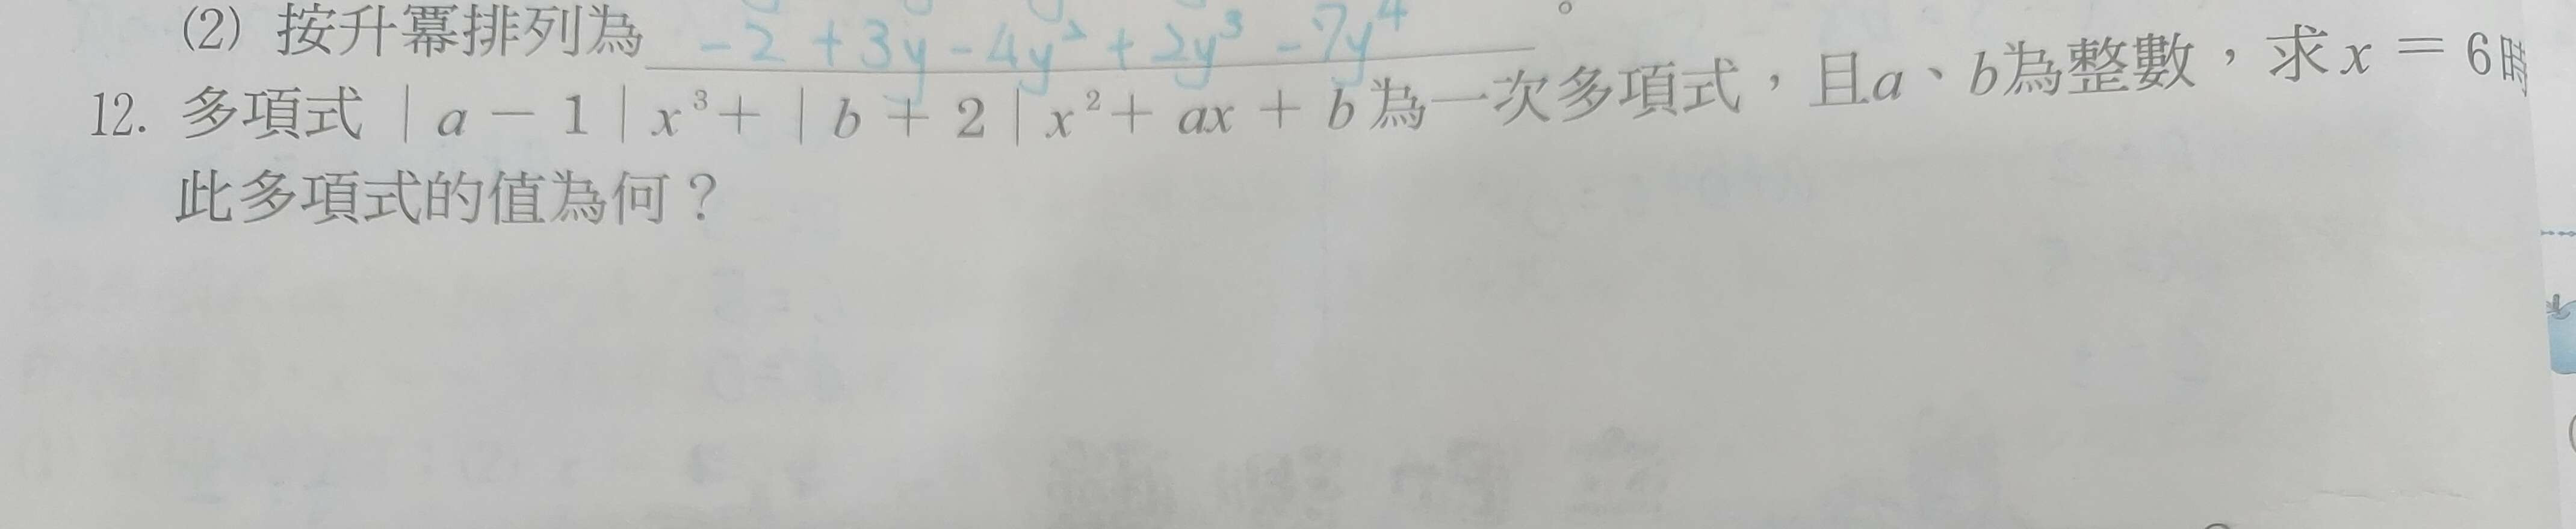 (2) 按升冪排列為 -2+3y-4y²+2y³-7y⁴ 。
12. 多項式｜a－1｜x³＋｜b＋2｜x²＋ax＋b為一次多項式，且a、b為整數，求x＝6時
此多項式的值為何？